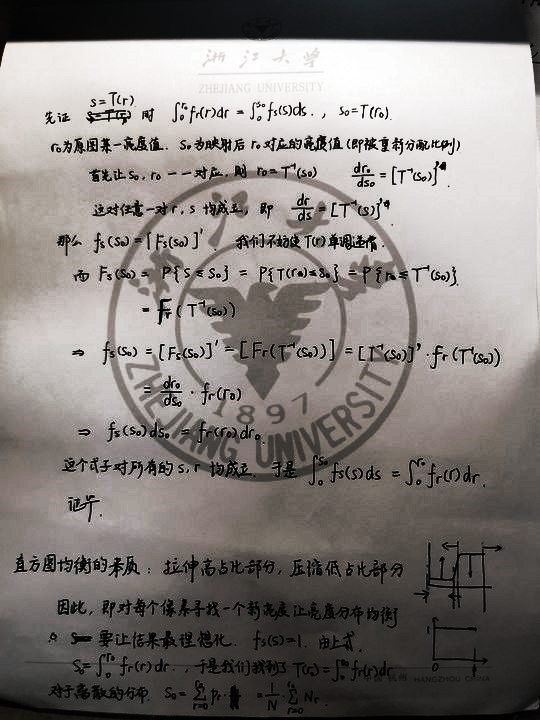 浙江大学
ZHEJIANG UNIVERSITY
先证 s=T(r) 时 ∫₀^{r₀} fr(r)dr = ∫₀^{s₀} fs(s)ds. , s₀=T(r₀).
r₀为原图某一亮度值. s₀为映射后r₀对应的亮度值(即被重新分配比例)
首先让s₀, r₀一一对应, 则 r₀=T⁻¹(s₀) dr₀/ds₀=[T⁻¹(s₀)]'.
这对任意一对r, s均成立, 即 dr/ds=[T⁻¹(s)]'.
那么 fs(s₀)=[Fs(s₀)]' 我们不妨使T(r)单调递增.
而 Fs(s₀) = P{s≤s₀} = P{T(r₀)≤s₀} = P{r₀≤T⁻¹(s₀)}.
= Fr(T⁻¹(s₀))
⇒ fs(s₀)=[Fs(s₀)]'=[Fr(T⁻¹(s₀))]=[T⁻¹(s₀)]'·fr(T⁻¹(s₀))
= dr₀/ds₀ · fr(r₀)
⇒ fs(s₀)ds₀ = fr(r₀)dr₀.
这个式子对所有的s,r均成立. 于是 ∫₀^{s₀} fs(s)ds = ∫₀^{r₀} fr(r)dr.
证毕
1897
ZHEJIANG UNIVERSITY
直方图均衡的本质: 拉伸高占比部分, 压缩低占比部分
因此, 即对每个像素寻找一个新亮度让亮度分布均衡
要让结果最理想化. fs(s)=1. 由上式.
s₀=∫₀^{r₀} fr(r)dr. , 于是我们找到了T(r₀)=∫₀^{r₀} fr(r)dr
对于离散的分布. s₀ = Σ_{r=0}^{r₀} Pr = 1/N · Σ_{r=0}^{r₀} Nr.
1
0
1
中国 杭州 HANGZHOU CHINA